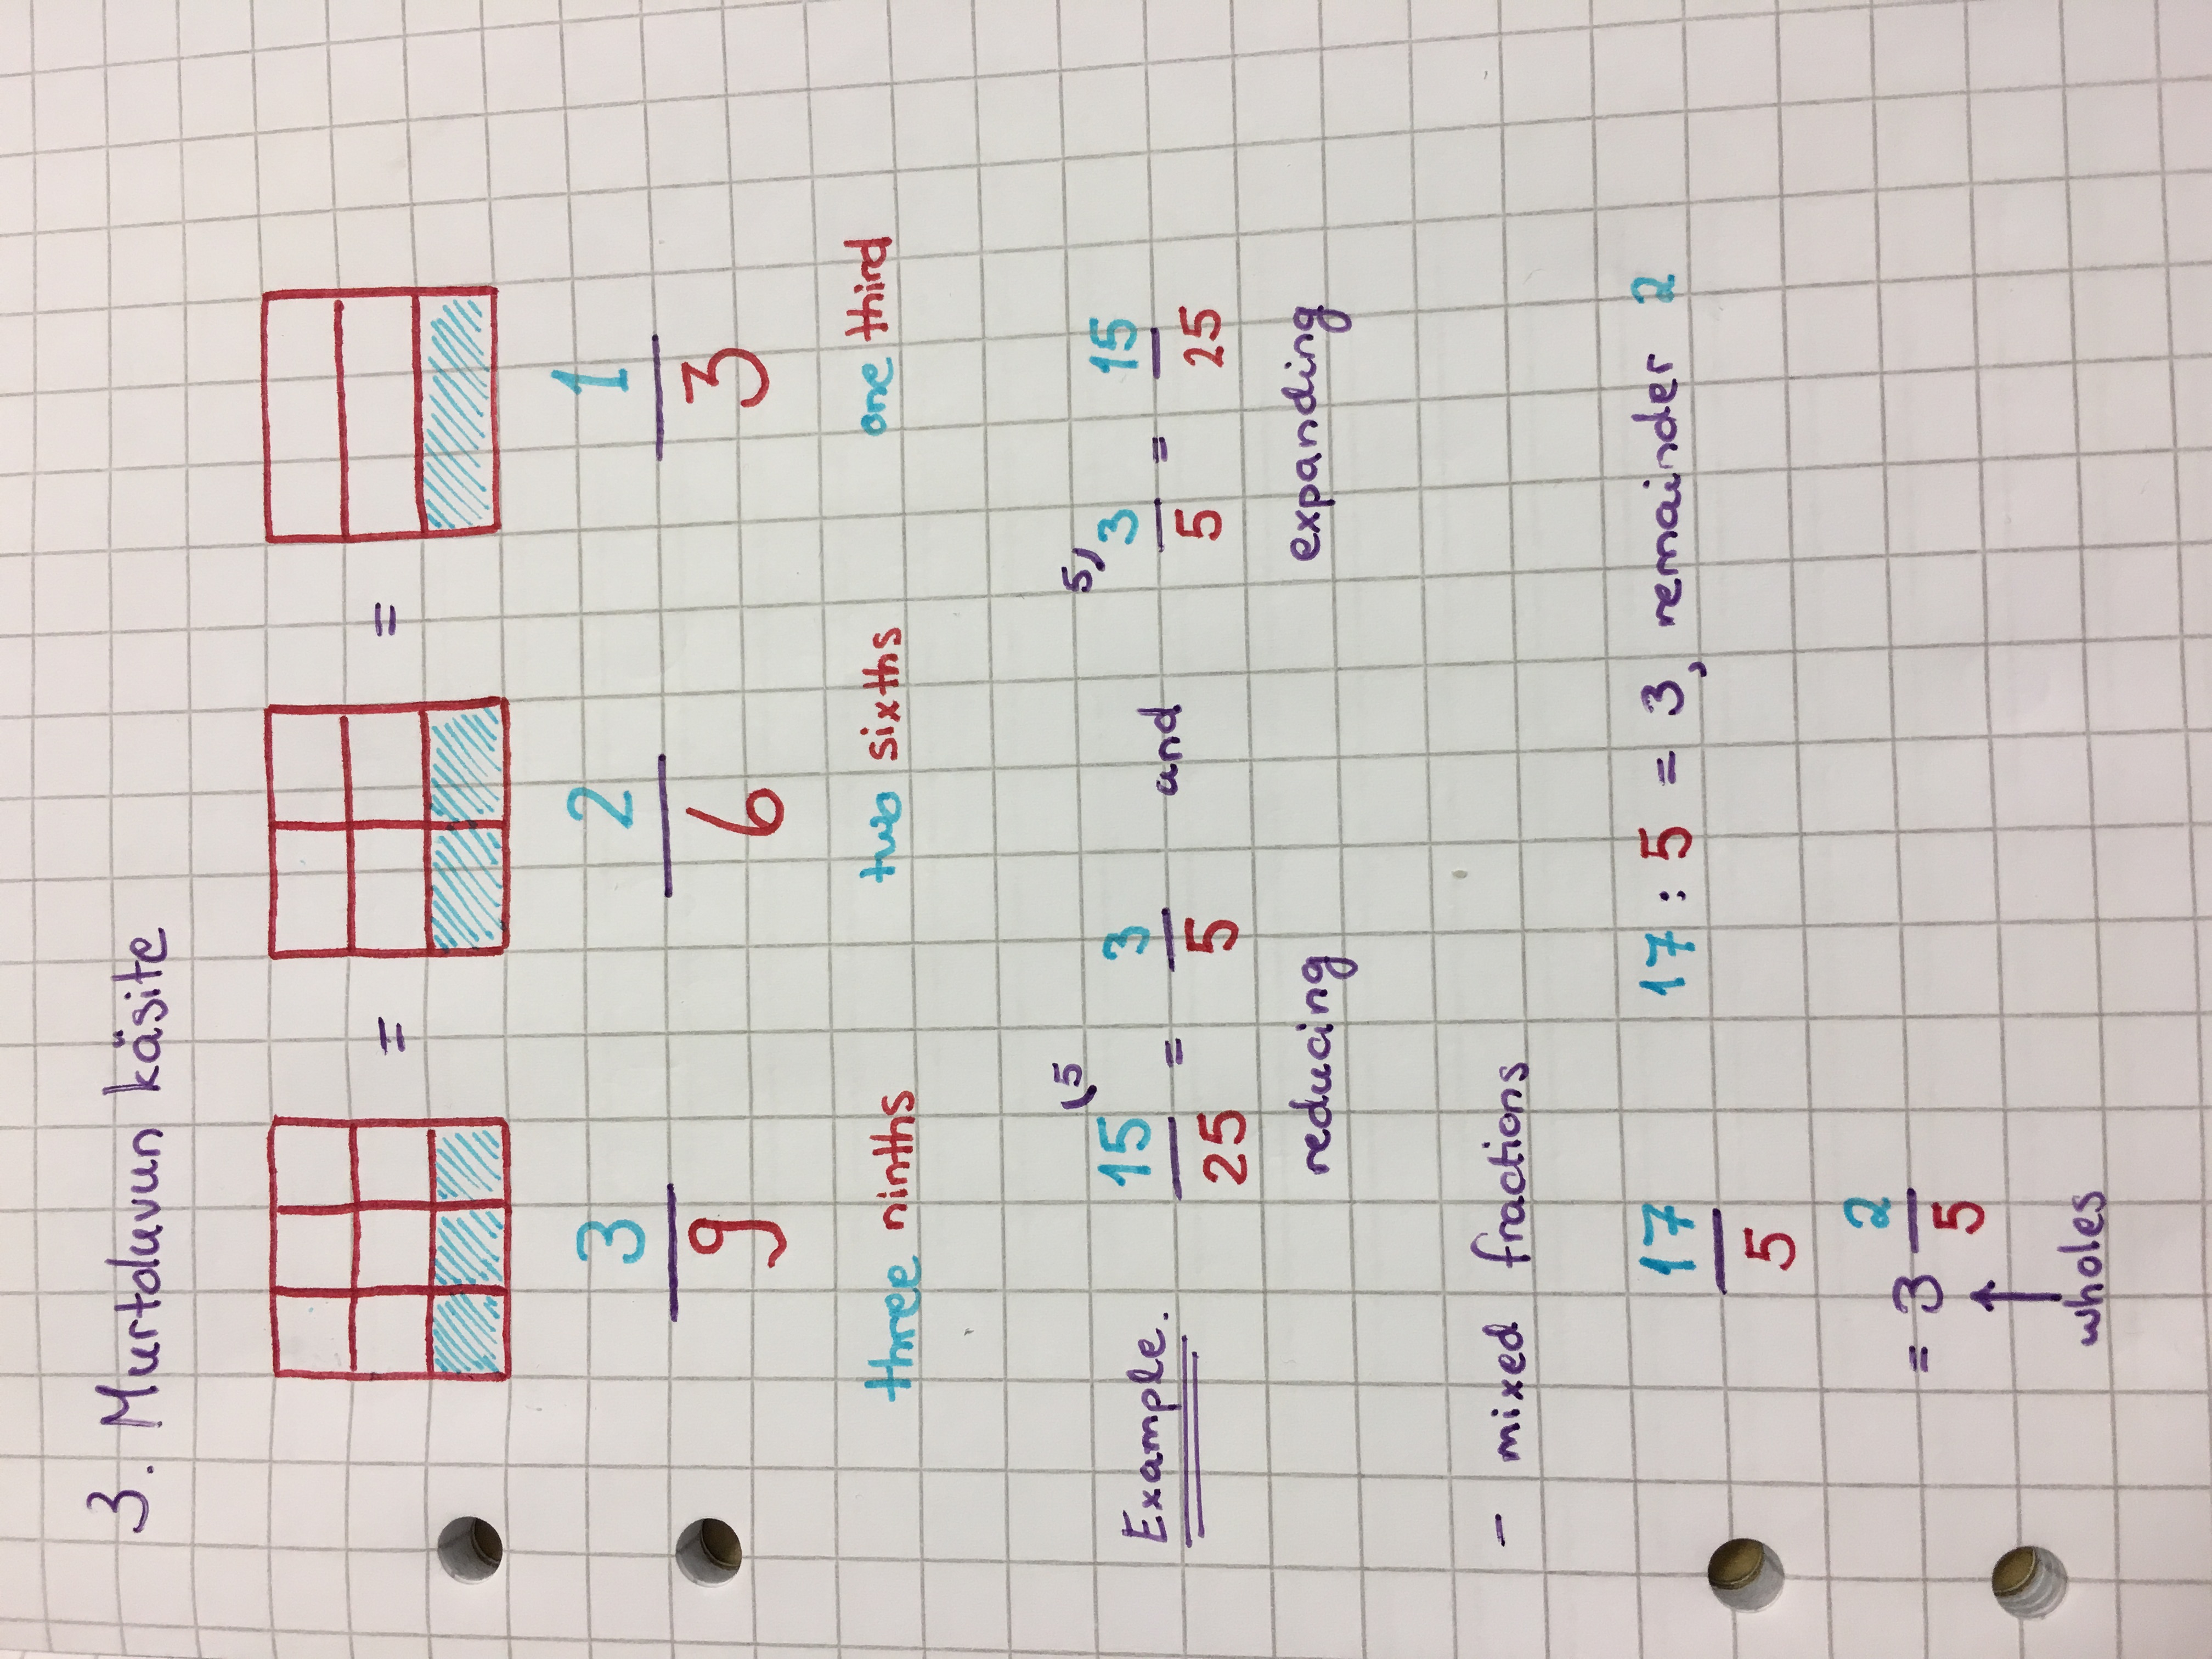 3. Murtoluvun käsite
= =
3/9 2/6 1/3
three ninths two sixths one third
Example. 15/25 (5 = 3/5 and 5) 3/5 = 15/25
reducing expanding
- mixed fractions
17/5 17 : 5 = 3, remainder 2
= 3 2/5
wholes